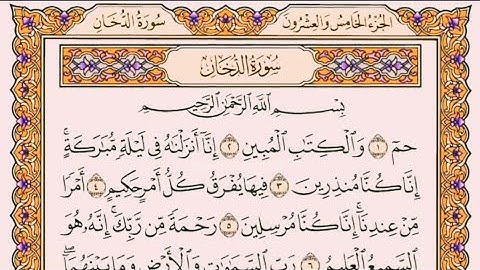 سُورَةُ الدُّخَانِ
الجُزْءُ الخَامِسُ وَالعِشْرُونَ
سُورَةُ الدُّخَانِ
بِسْمِ اللَّهِ الرَّحْمَٰنِ الرَّحِيمِ
حمٓ ١ وَالْكِتَابِ الْمُبِينِ ٢ إِنَّا أَنزَلْنَاهُ فِي لَيْلَةٍ مُّبَارَكَةٍ ۚ
إِنَّا كُنَّا مُنذِرِينَ ٣ فِيهَا يُفْرَقُ كُلُّ أَمْرٍ حَكِيمٍ ٤ أَمْرًا
مِّنْ عِندِنَا ۚ إِنَّا كُنَّا مُرْسِلِينَ ٥ رَحْمَةً مِّن رَّبِّكَ ۚ إِنَّهُ هُوَ
السَّمِيعُ الْعَلِيمُ ٦ رَبِّ السَّمَاوَاتِ وَالْأَرْضِ وَمَا بَيْنَهُمَا ۖ